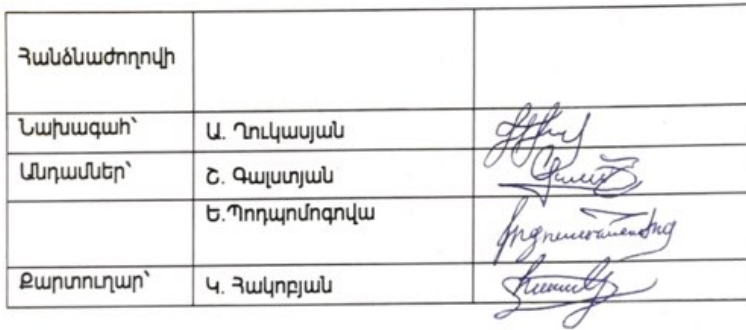 Հանձնաժողովի
Նախագահ՝ Ա. Ղուկասյան
Անդամներ՝ Շ. Գալստյան
Ե.Պոդպոմոգովա
Քարտուղար՝ Կ. Հակոբյան